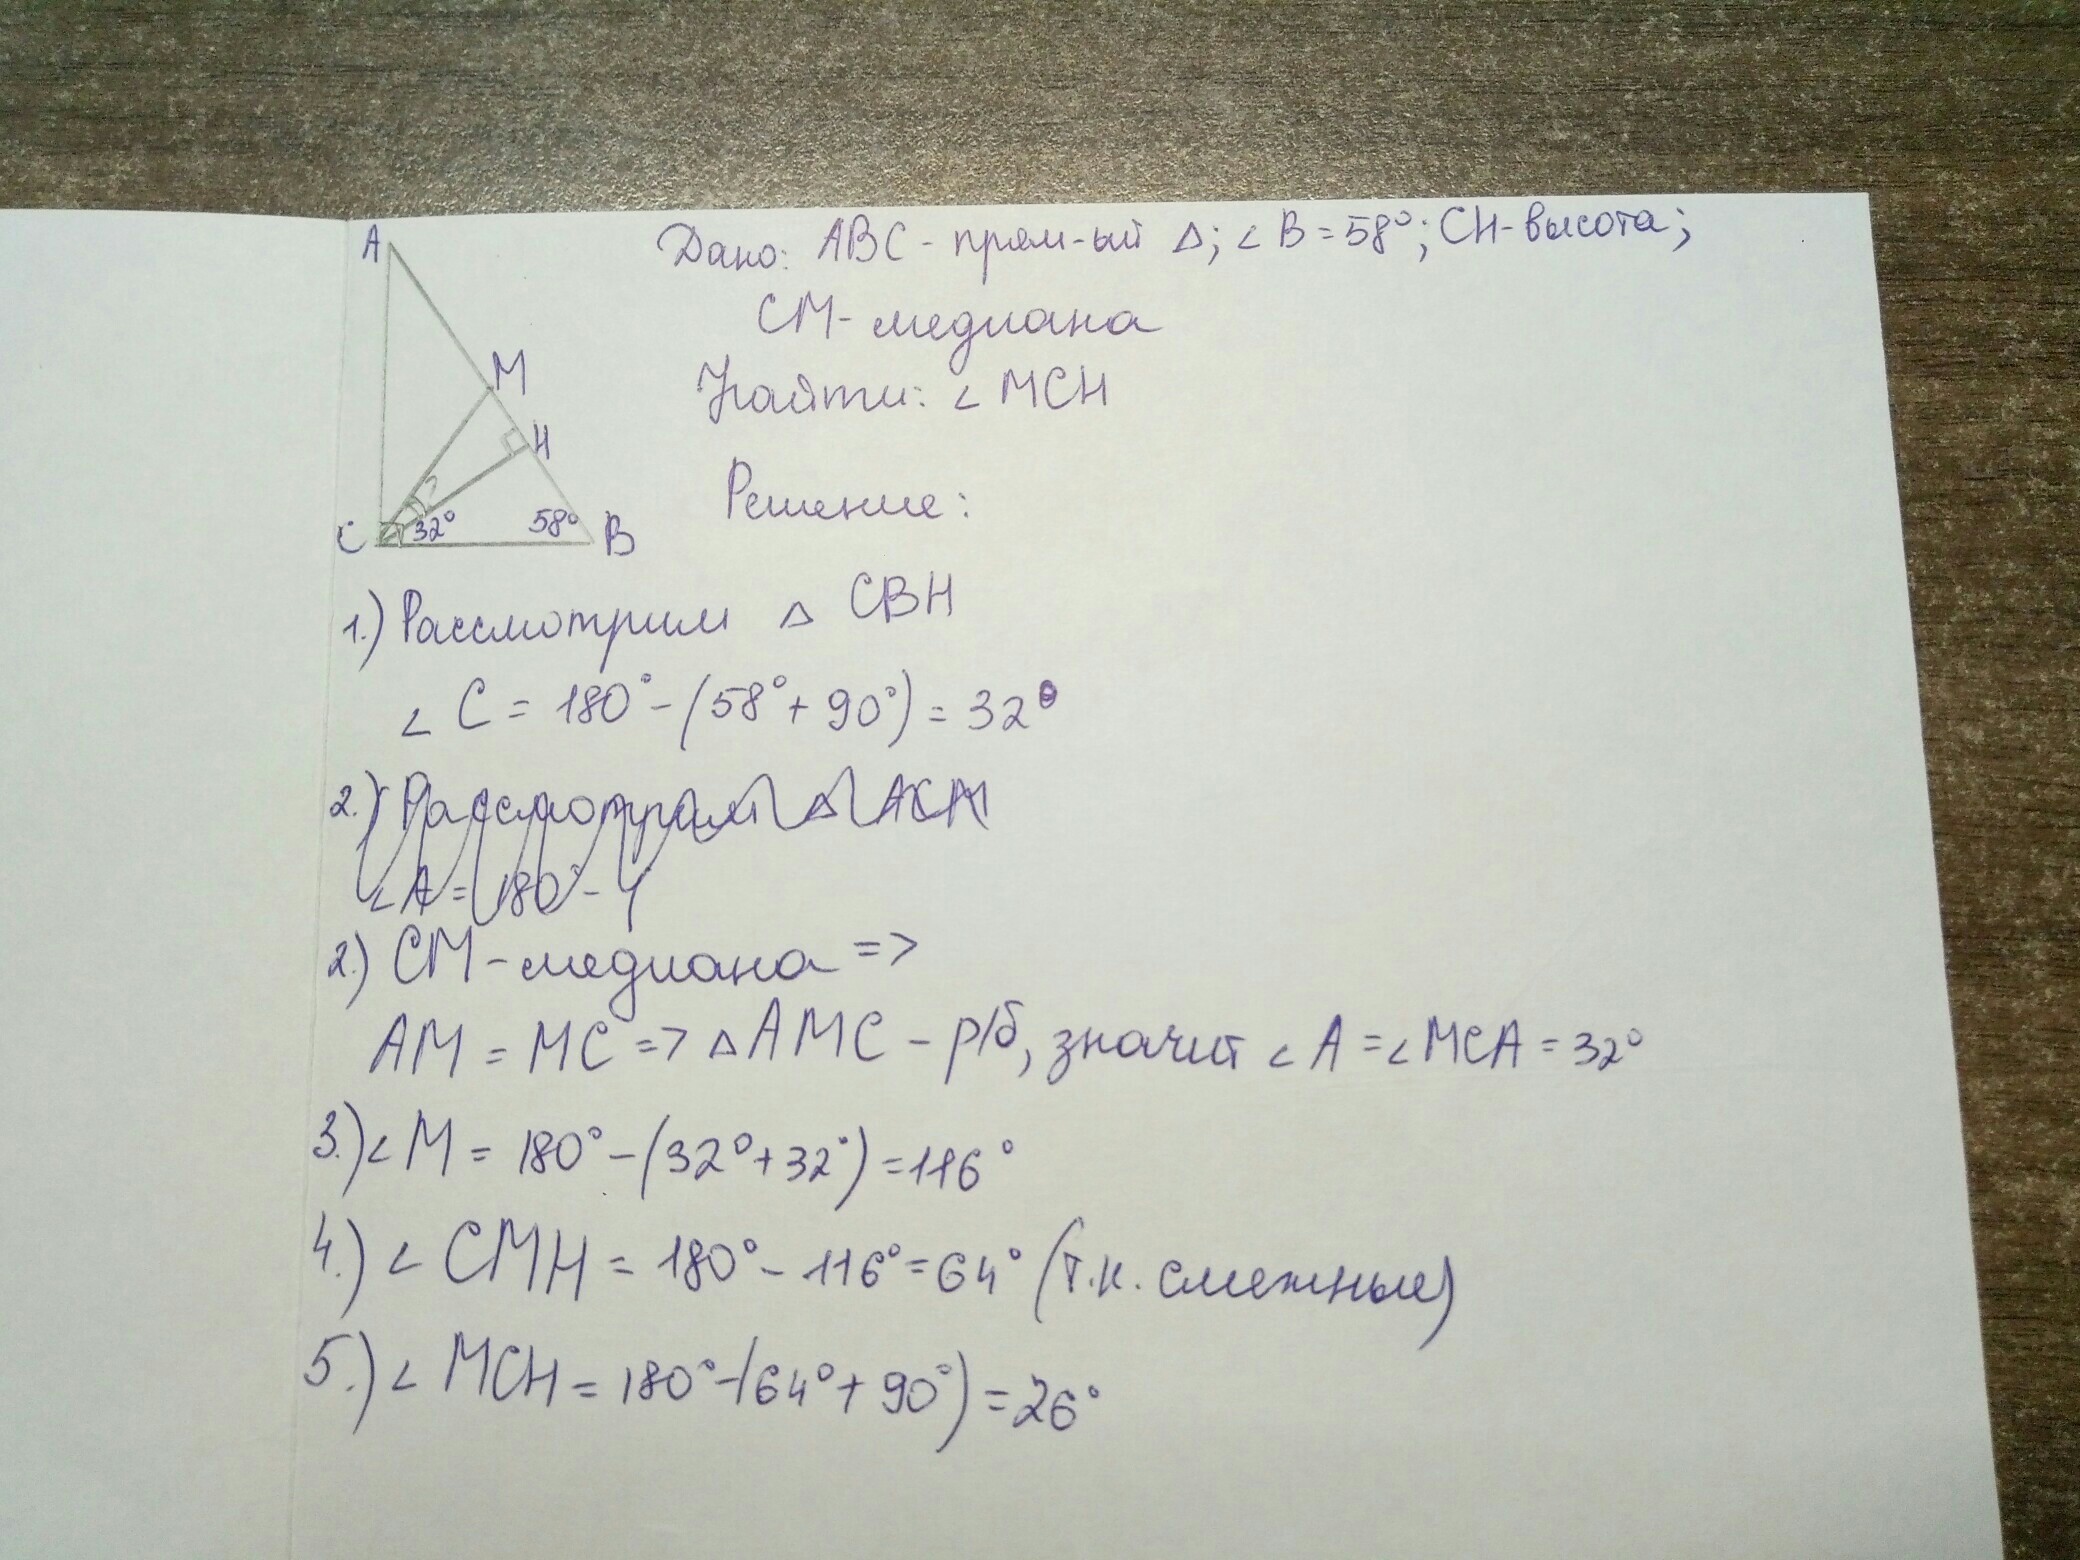 A
M
H
?
C
32°
58°
B
Дано: ABC - прям-ый Δ; ∠B = 58°; CH - высота;
CM - медиана
Найти: ∠MCH
Решение:
1.) Рассмотрим Δ CBH
∠C = 180° - (58° + 90°) = 32°
2.) Рассмотрим Δ ACM
∠A = 180° - (
2.) CM - медиана =>
AM = MC => Δ AMC - р/б, значит ∠A = ∠MCA = 32°
3.) ∠M = 180° - (32° + 32°) = 116°
4.) ∠CMH = 180° - 116° = 64° (т.к. смежные)
5.) ∠MCH = 180° - (64° + 90°) = 26°